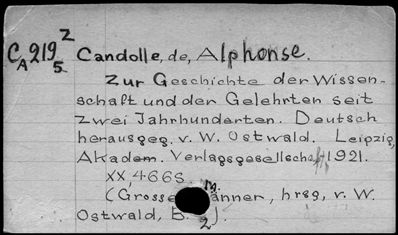 CA219 Z5 Candolle, de, Alphonse.
Zur Geschichte der Wissen-
schaft und der Gelehrten seit
zwei Jahrhunderten. Deutsch
herausgeg. v. W. Ostwald. Leipzig,
Akadem. Verlagsgesellschaft 1921.
XX, 466S.
(Grosse Männer, hrsg. v. W.
Ostwald, B. 2).